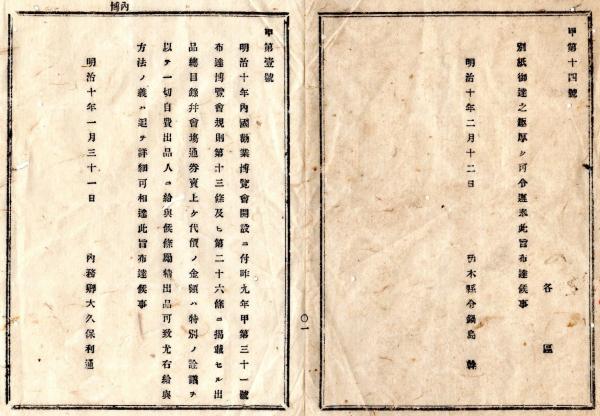 甲第十四號
各區
別紙御達之趣厚ク可令遵奉此旨布達候事
明治十年二月十二日
栃木縣令鍋島幹
內博
甲第壹號
明治十年內國勸業博覽會開設ニ付昨九年甲第三十一號
布達博覽會規則第十三條及ヒ第二十六條ニ揭載セル出
品總目錄幷會塲通券賣上ケ代價ノ金額ハ特別ノ詮議ヲ
以テ一切自費出品人ニ給與候條勵精出品可致尤右給與
方法ノ義ハ追テ詳細可相達此旨布達候事
明治十年一月三十一日
內務卿大久保利通
〇一